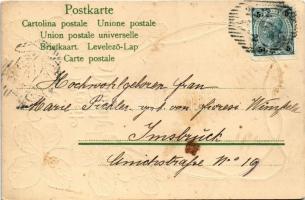 Postkarte
Cartolina postale Unione postale
Union postale universelle
Briefkaart Levelező-Lap
Carte postale
Hochwohlgeboren Frau
Marie Pichler
Innsbruck
Anichstraße No 19